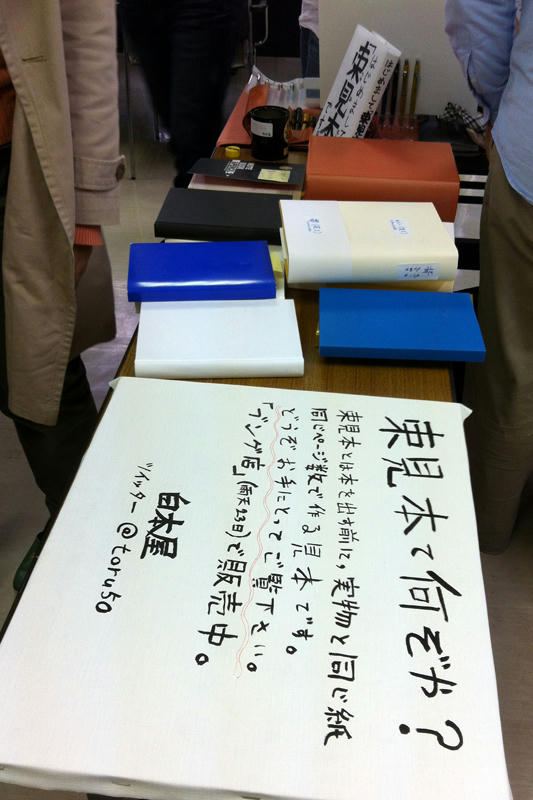 束見本て何ぞや?
束見本とは本を出す前に、実物と同じ紙
同じページ数で作る見本です。
どうぞお手にとってご覧下さい。
「ブング店」(雨天23日)で販売中。
白本屋
ツイッター@toru50
束見本